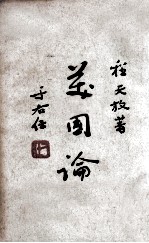 程天放著
美国論
于右任